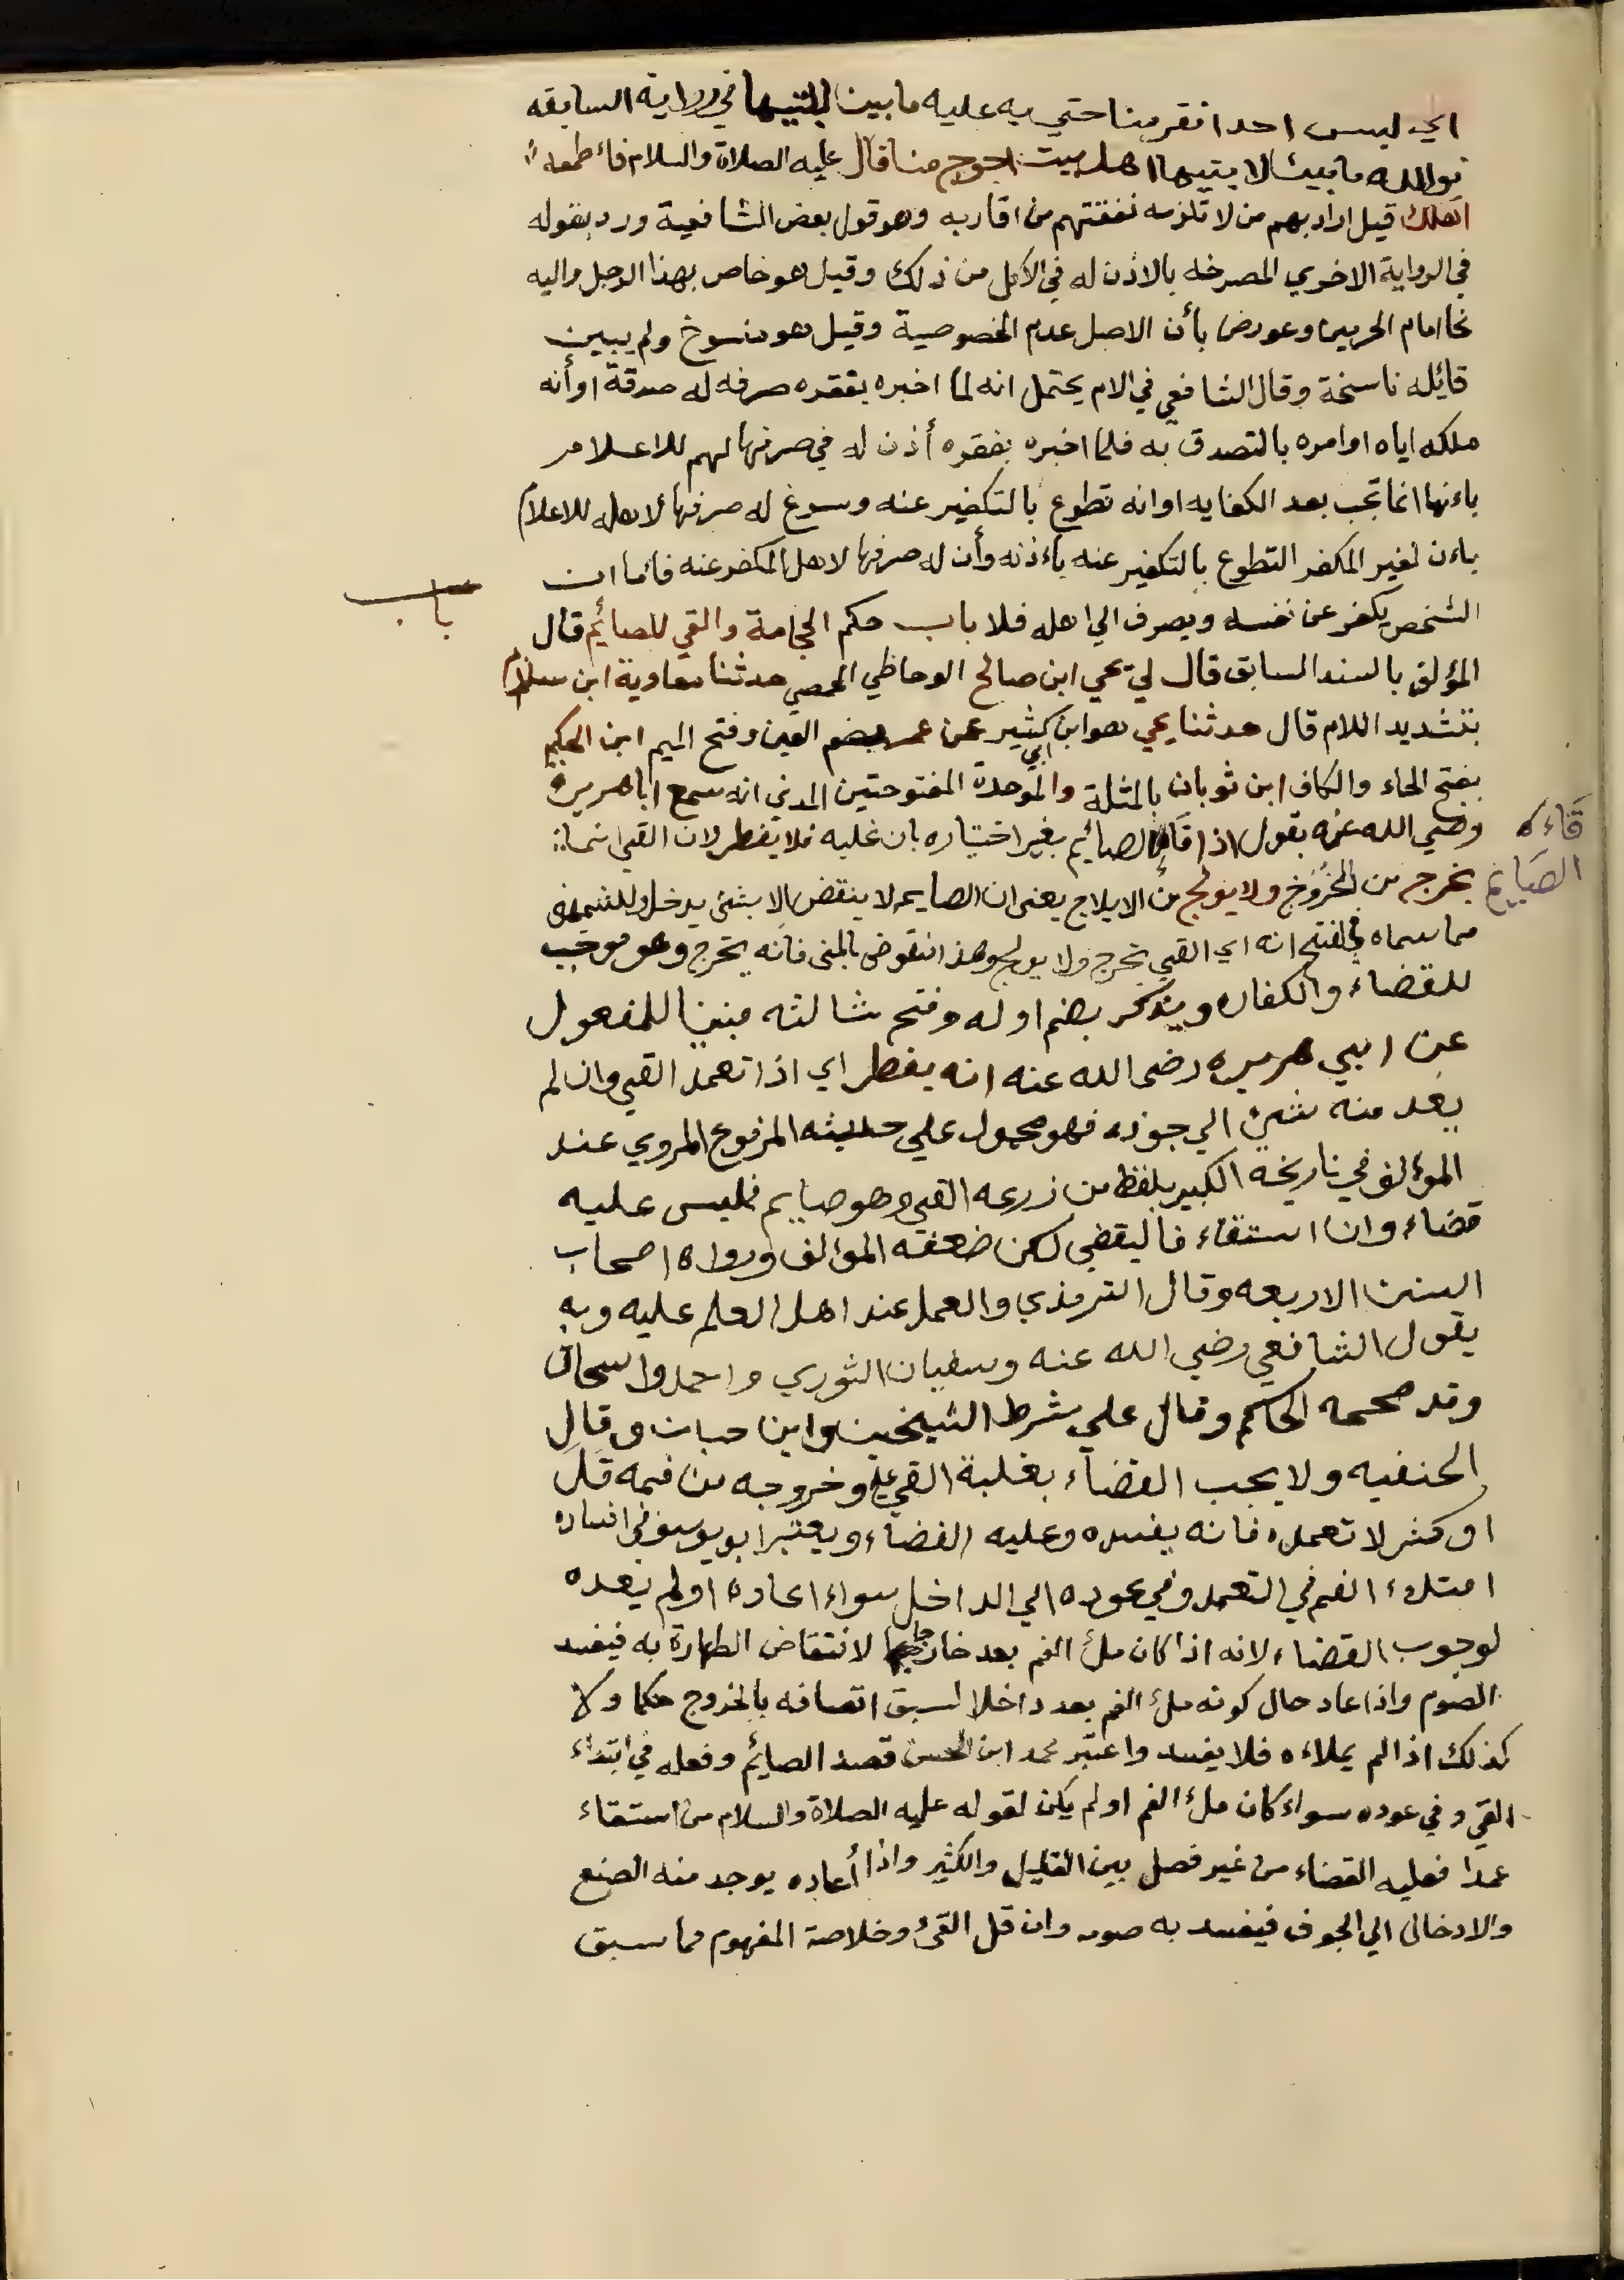 اي ليس احد افقر منا حتي به عليه ما بين لابتيها في رواية السابقه
فوالله ما بين لا بتيها اهل بيت احوج منا قال عليه الصلاة والسلام فاءطعمه
اهلك قيل اراد بهم من لا تلزمه نفقتهم من اقاربه وهو قول بعض الشافعية ورد بقوله
في الرواية الاخري المصرخه بالاذن له في الاكل من ذلك وقيل هو خاص بهذا الرجل واليه
نحا امام الحرمين وعورض بأن الاصل عدم الخصوصية وقيل هو منسوخ ولم يبين
قائله ناسخة وقال الشافعي في الام يحتمل انه لما اخبره بفقره صرفه له صدقة او أنه
ملكه اياه او امره بالتصدق به فلما اخبره بفقره أذن له في صرفها لهم للاعلام
باءنها انما تجب بعد الكفايه او انه تطوع بالتكفير عنه وسوغ له صرفها لاهله للاعلام
باءن لغير المكفر التطوع بالتكفير عنه باءذنه وأن له صرفها لاهل المكفر عنه فاما ان
باب
الشخص يكفر عن نفسه ويصرف الي اهله فلا باب حكم الحجامة والقي للصائيم قال
المؤلف بالسند السابق قال لي يحي ابن صالح الوحاظي الحمصي حدثنا معاوية ابن سلام
بتشديد اللام قال حدثنا يحي هو ابن ابي كثير عن عمر بضم العين وفتح الميم ابن الحكم
بفتح الحاء والكاف ابن ثوبان بالمثلة والموحدة المفتوحتين المدني انه سمع ابا هريرة
رضي الله عنه يقول اذا قاء الصائيم بغير اختياره بان غلبه فلا يفطر لان القي انما
قاءه
الصاييم
يخرج من الخروج ولا يولج من الايلاج يعني ان الصايم لا ينقض الا بشئ يدخل وللكشميهني
مما سماه في الفتح انه اي القي يخرج ولا يولج وهذا منقوض بالمني فانه يخرج وهو موجب
للقضاء والكفاره ويذكر بضم اوله وفتح ثالثه مبنيا للمفعول
عن ابي هريره رضي الله عنه انه يفطر اي اذا تعمد القي وان لم
يعد منه شئ الي جوفه فهو محمول علي حديثه المرفوع المروي عند
المؤالف في تاريخه الكبير بلفظ من ذرعه القي وهو صايم فليس عليه
قضاء وان استقاء فاليقضي لكن ضعفه المؤالف ورواه اصحاب
السنن الاربعه وقال الترمذي والعمل عند اهل العلم عليه وبه
يقول الشافعي رضي الله عنه وسفيان الثوري واحمد واسحاق
وقد صححه الحاكم وقال علي شرط الشيخين وابن حبان وقال
الحنفيه ولا يجب القضاء بغلبة القي عليه وخروجه من فمه قل
او كثر لا تعمده فانه يفسده وعليه القضاء ويعتبر ابو يوسف في افساده
امتلاء الفم في التعمد وفي عوده الي الداخل سواء اعاده او لم يعده
لوجوب القضاء لانه اذا كان ملئ الفم بعد خارجا لانتقاض الطهارة به فيفسد
الصوم واذا عاد حال كونه ملئ الفم بعد داخلا لسبق اتصافه بالخروج حكما ولا
كذلك اذا لم يملاءه فلا يفسد واعتبر محمد ابن الحسن قصد الصائيم وفعله في ابتداء
القي وفي عوده سواء كان ملئ الفم او لم يكن لقوله عليه الصلاة والسلام من استقاء
عمدا فعليه القضاء من غير فصل بين القليل والكثير واذا أعاده يوجد منه الصنع
والادخال الي الجوف فيفسد به صومه وان قل القئ وخلاصة المفهوم مما سبق